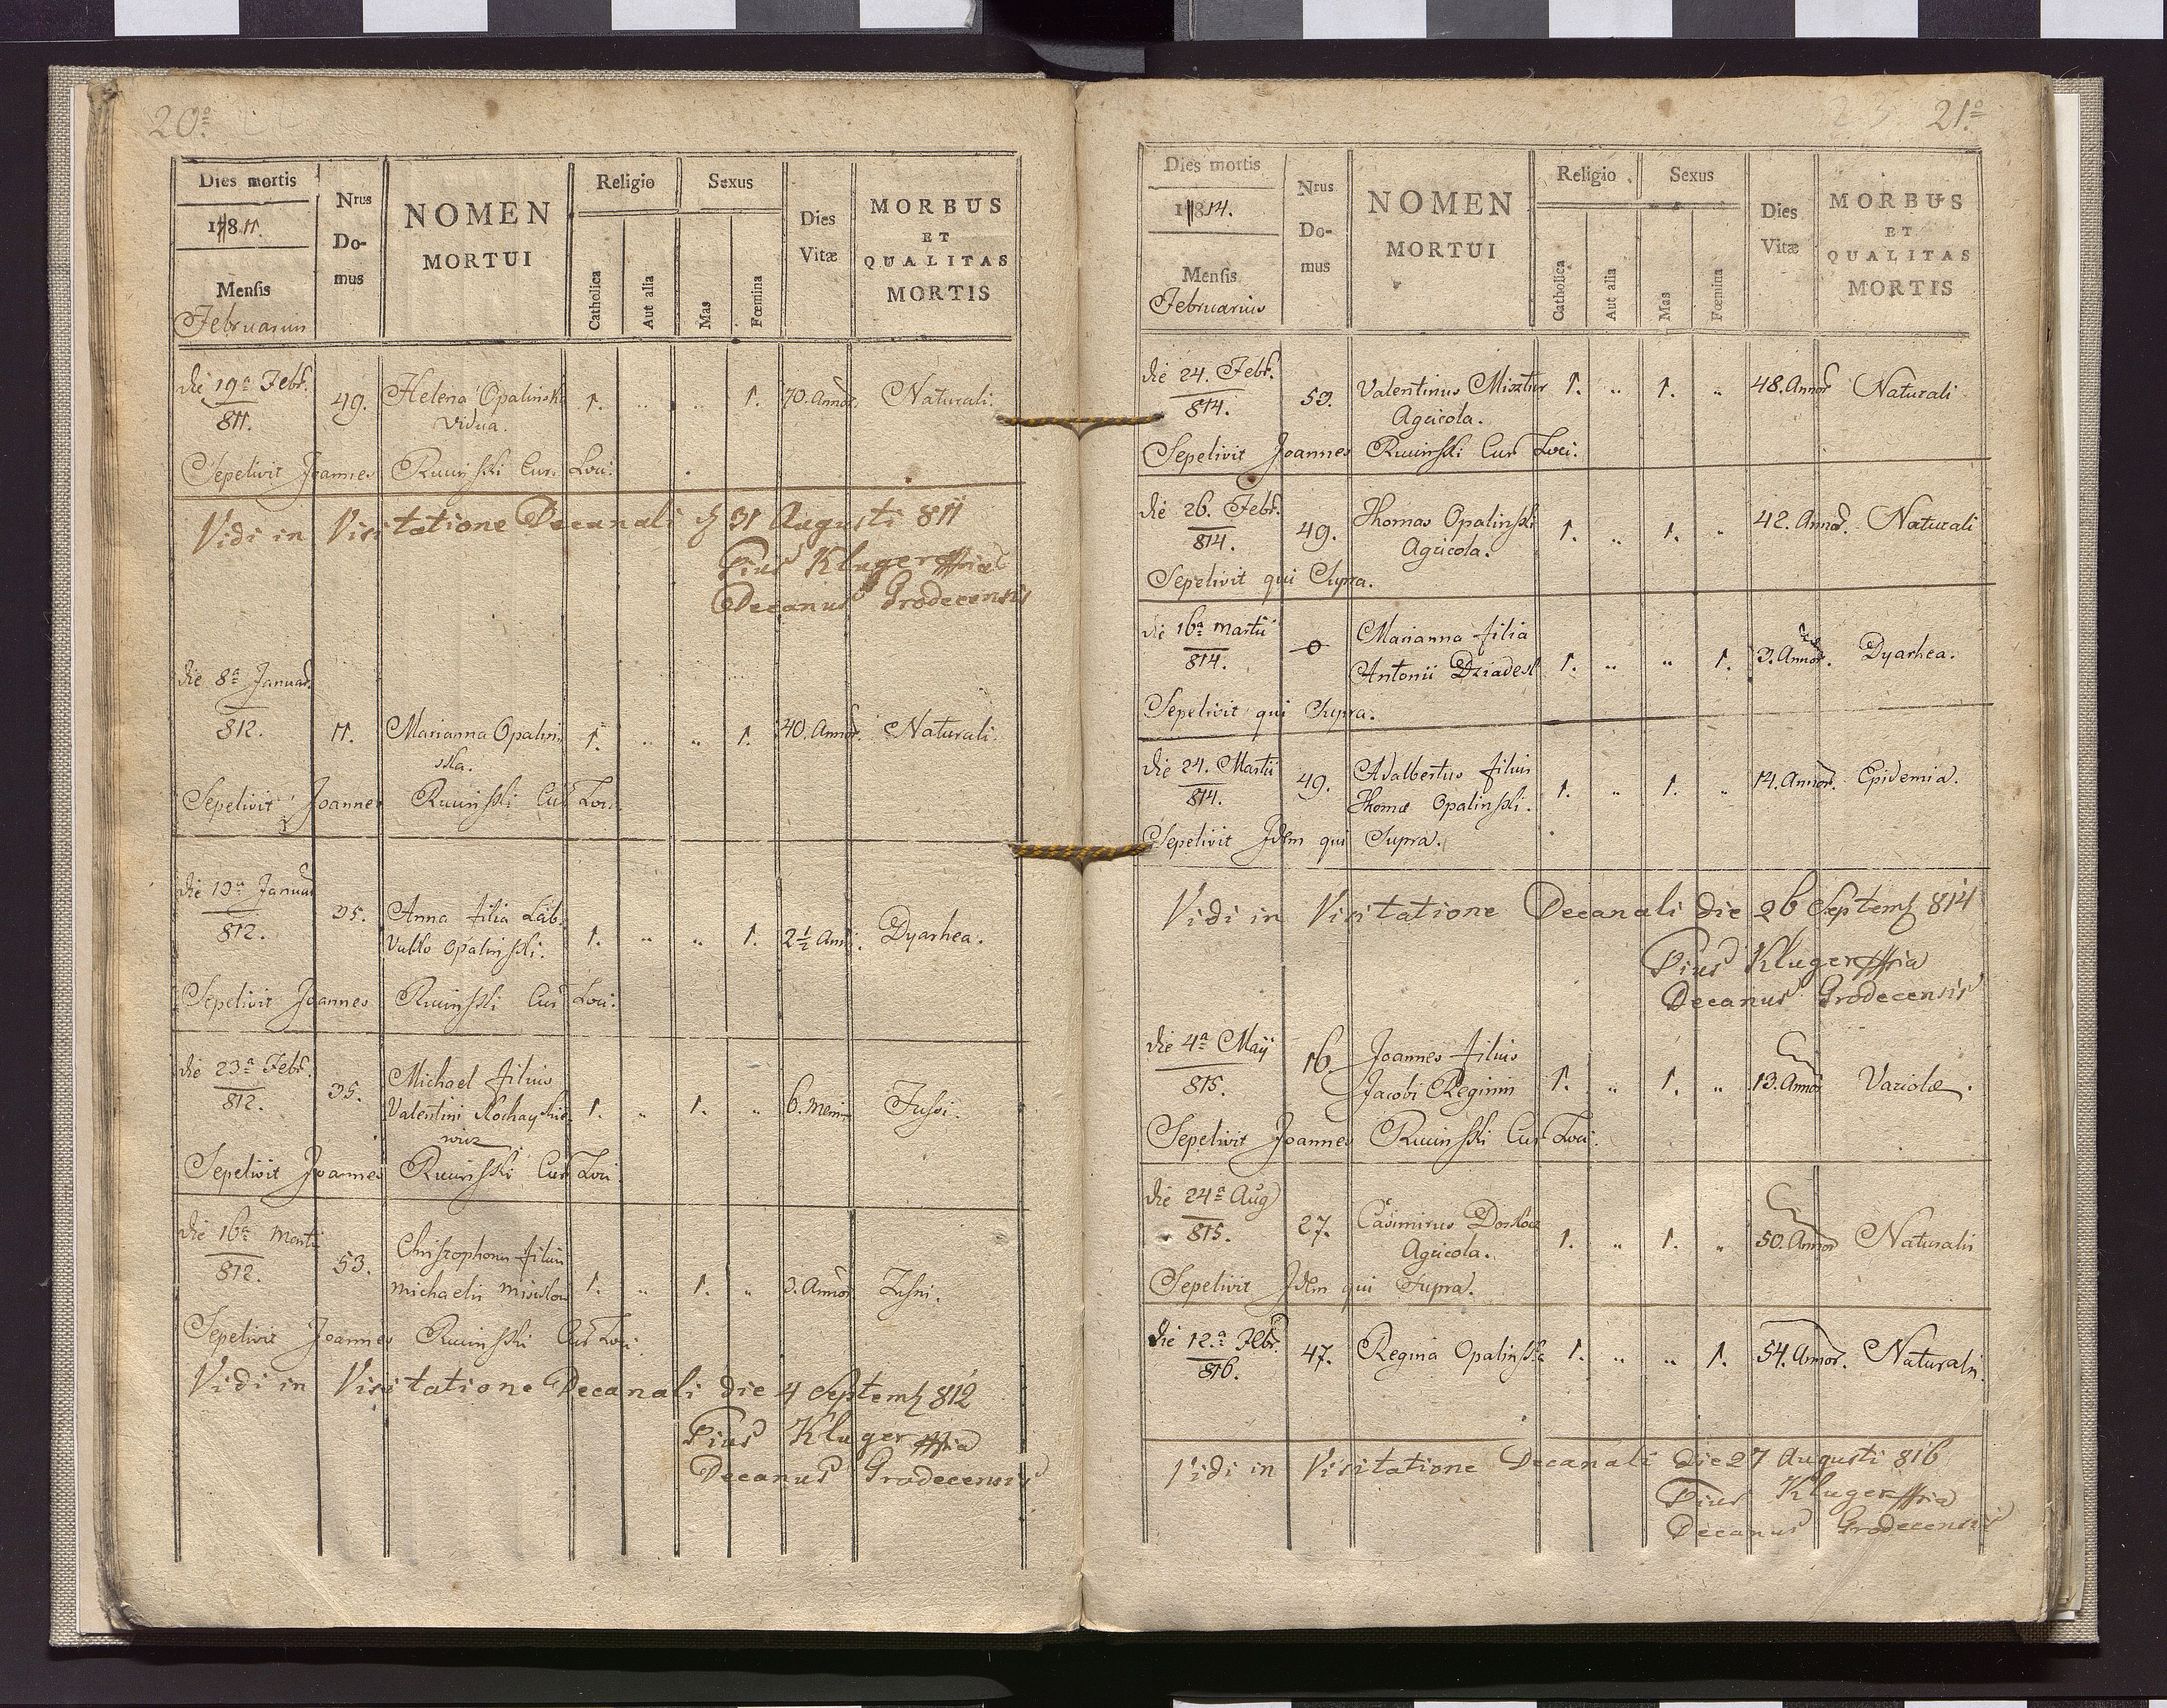 20º
Dies mortis
1811.
Mensis
Februarius
Nrus
Do-
mus
NOMEN
MORTUI
Religio
Catholica
Aut alia
Sexus
Mas
Fœmina
Dies
Vitæ
MORBUS
ET
QUALITAS
MORTIS
die 19ª Febr. 811. 49. Helena Opalinska 1. .. .. 1. 70. Annor. Naturali.
Vidua.
Sepelivit Joannes Ruwinski Cur. Loci.
Vidi in Visitatione Decanali 31 Augusti 811
Pius Kluger
Decanus Grodecensis
die 8ª Januar. 812. 11. Marianna Opalin- 1. .. .. 1. 40. Annor. Naturali.
ska.
Sepelivit Joannes Ruwinski Cur Loci.
die 13ª Januar 812. 35. Anna filia Lab. 1. .. .. 1. 2½ Anni. Dyarhea.
Opalinski.
Sepelivit Joannes Ruwinski Cur Loci.
die 23ª Febr. 812. 35. Michael filius
Valentini 1. .. 1. .. 6. Mensi Tussi.
wicz
Sepelivit Joannes Ruwinski Cur Loci.
die 16ª Martii 812. 53. Christophorus filius
Michaelis 1. .. 1. .. 3. Annor
Sepelivit Joannes Ruwinski Cur Loci.
Vidi in Visitatione Decanali die 4 Septemb 812
Pius Kluger
Decanus Grodecensis
21º
Dies mortis
1814.
Mensis
Februarius
Nrus
Do-
mus
NOMEN
MORTUI
Religio
Catholica
Aut alia
Sexus
Mas
Fœmina
Dies
Vitæ
MORBUS
ET
QUALITAS
MORTIS
die 24. Febr. 814. 53. Valentinus Misztur 1. .. 1. .. 48. Annor Naturali
Agricola.
Sepelivit Joannes Ruwinski Cur Loci.
die 26. Febr. 814. 49. Thomas Opalinski 1. .. 1. .. 42. Annor. Naturali
Agricola.
Sepelivit qui Supra.
die 16ª Martii 814. 0 Marianna filia
Antonii Dziadesz 1. .. .. 1. 3. Annor. Dyarhea.
Sepelivit qui Supra.
die 24. Martii 814. 49. Adalbertus filius
Thomæ Opalinski. 1. .. 1. .. 14. Annor. Epidemia.
Sepelivit Idem qui Supra.
Vidi in Visitatione Decanali die 26 Septemb 814
Pius Kluger
Decanus Grodecensis
die 4ª Maÿ 815. 16. Joannes filius
Jacobi Reginin 1. .. 1. .. 13. Annor Variolæ.
Sepelivit Joannes Ruwinski Cur Loci.
die 24ª Aug 815. 27. Casimirus 1. .. 1. .. 50. Annor Naturalis
Agricola.
Sepelivit Idem qui Supra.
die 12.ª Febr. 816. 47. Regina Opalinska 1. .. .. 1. 54. Annor. Naturalis.
Vidi in Visitatione Decanali die 27 Augusti 816
Pius Kluger
Decanus Grodecensis